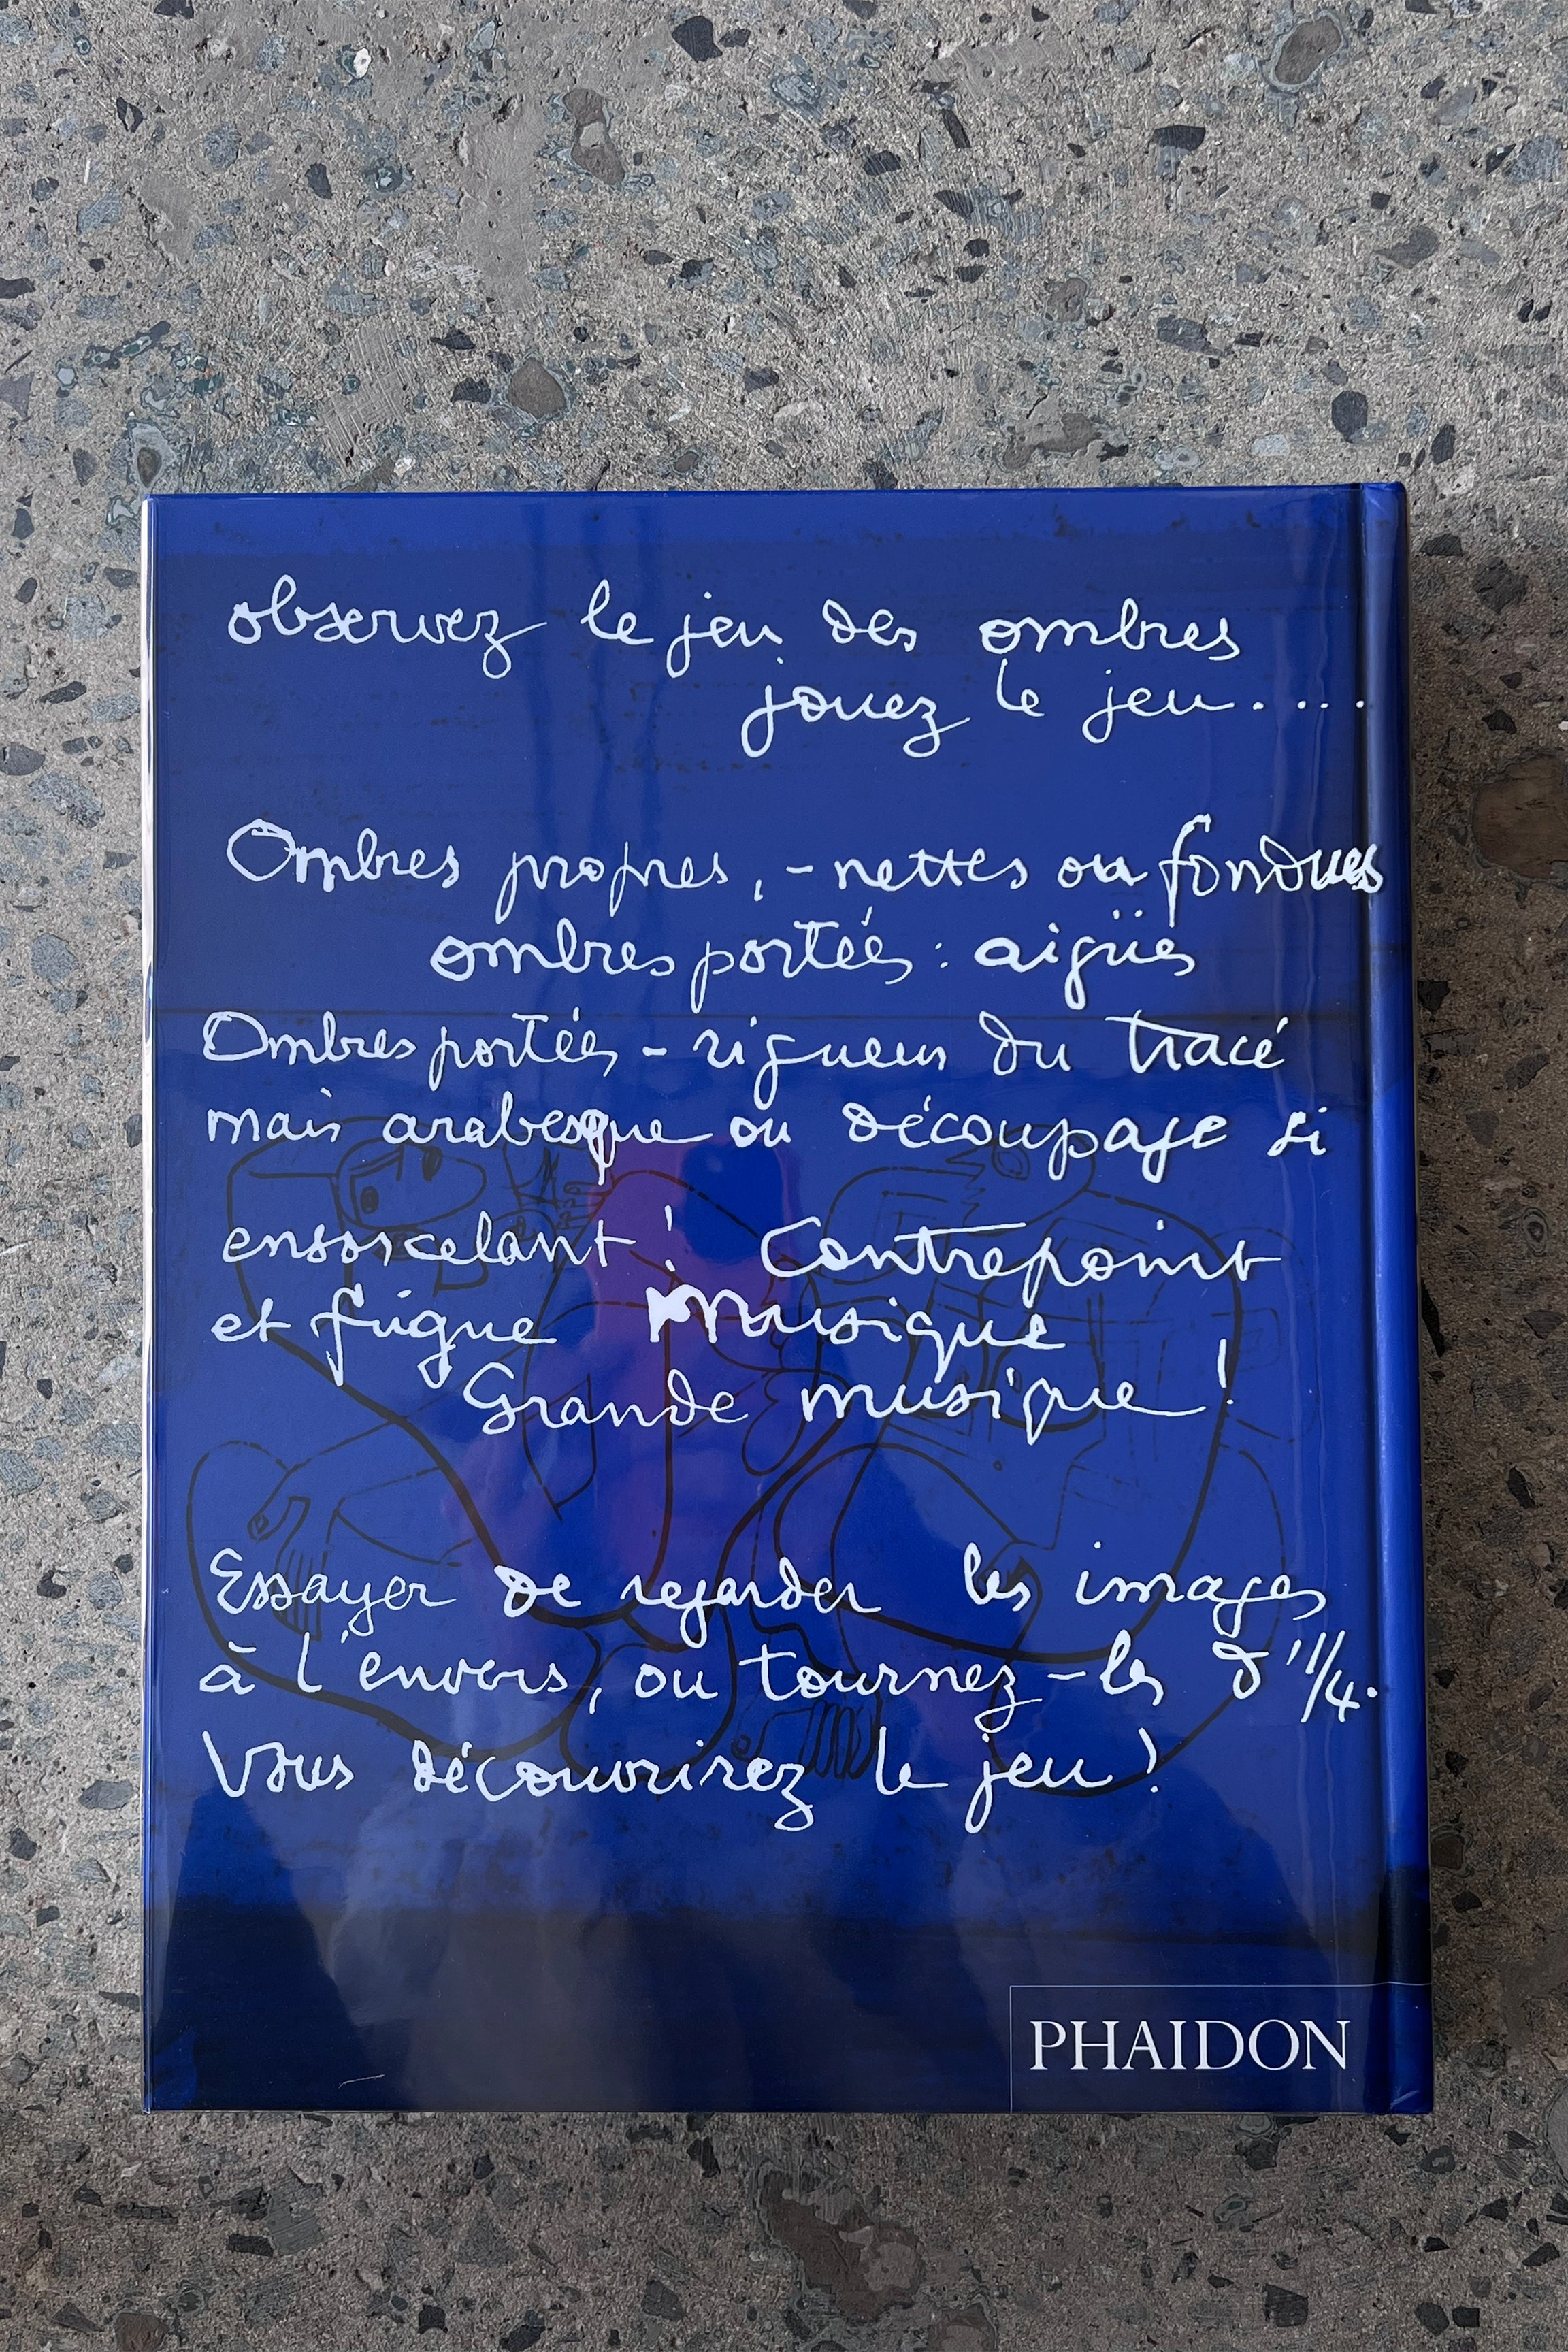 observez le jeu des ombres
jouez le jeu....
Ombres propres, - nettes ou fondues
ombres portées : aigües
Ombres portées - rigueur du tracé
mais arabesque ou découpage si
ensorcelant ! Contrepoint
et fugue Musique
Grande musique !
Essayer de regarder les images
à l'envers, ou tournez-les d'1/4.
Vous découvrirez le jeu !
PHAIDON